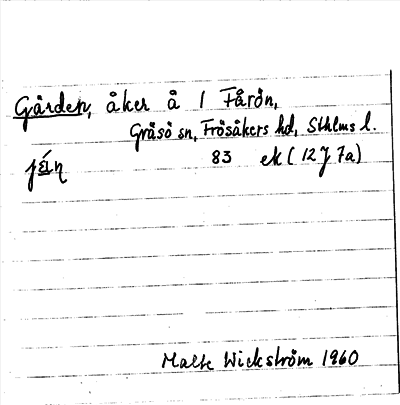 Gården, åker å 1 Fårön,
Gräsö sn, Frösåkers hd, Sthlms l.
83 ek (12 J 7a)
Malte Wickström 1960